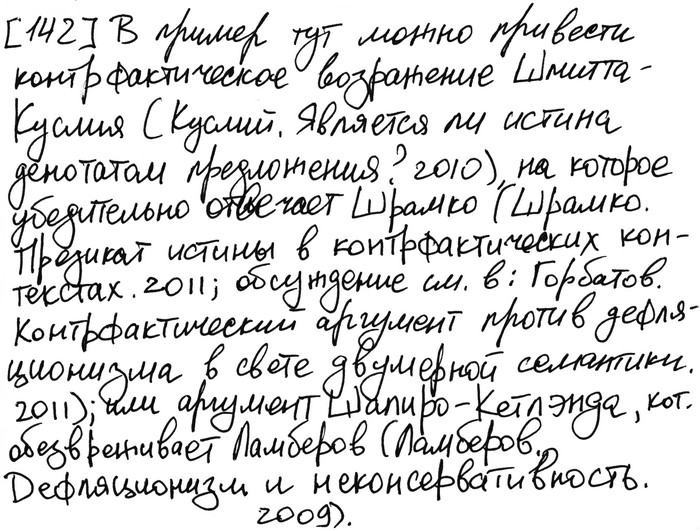 [142] В пример тут можно привести
контрфактическое возражение Шмитта-
Куслия (Куслий. Является ли истина
денотатом предложения? 2010), на которое
убедительно отвечает Шрамко (Шрамко.
Предикат истины в контрфактических кон-
текстах. 2011; обсуждение см. в: Горбатов.
Контрфактический аргумент против дефля-
ционизма в свете двумерной семантики.
2011); или аргумент Шапиро-Кетлэнда, кот.
обезвреживает Ламберов (Ламберов.
Дефляционизм и неконсервативность.
2009).